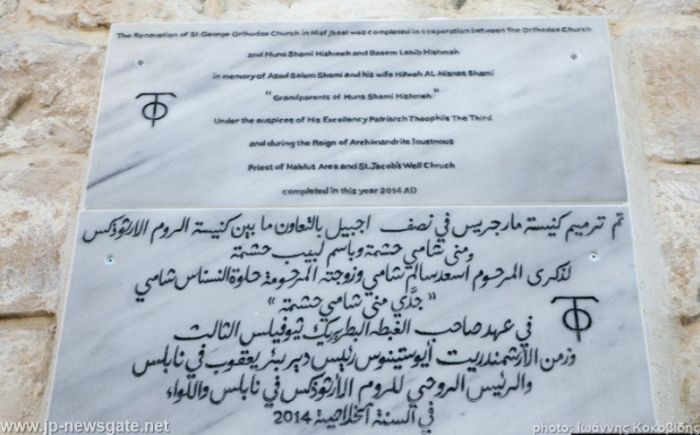 The Renovation of St.George Orthodox Church in Nisf Jbeel was completed in cooperation between the Orthodox Church
and Muna Shami Hishmeh and Basem Labib Hishmeh
in memory of Asad Salem Shami and his wife Hilweh AL Nisnas Shami
"Grandparents of Muna Shami Hishmeh"
Under the auspices of His Excellency Patriarch Theophils The Third
and during the Reign of Archimandrite Ioustnous
Priest of Nablus Area and St.Jacob's Well Chruch
completed in this year 2014 AD
تم ترميم كنيسة مارجريس في نصف اجبيل بالتعاون ما بين كنيسة الروم الارثوذكس
ومنى شامي حشمة وباسم لبيب حشمة
لذكرى المرحوم اسعد سالم شامي وزوجته المرحومة حلوة النسناس شامي
"جدَّي منى شامي حشمة"
في عهد صاحب الغبطه البطريرك ثيوفيلس الثالث
وزمن الأرشمندريت أيوستينوس رئيس دير بئر يعقوب في نابلس
والرئيس الروحي للروم الأرثوذكس في نابلس واللواء
في السنة الخلاصية 2014
www.jp-newsgate.net
photo: Ιωάννης Κοκοβίδης